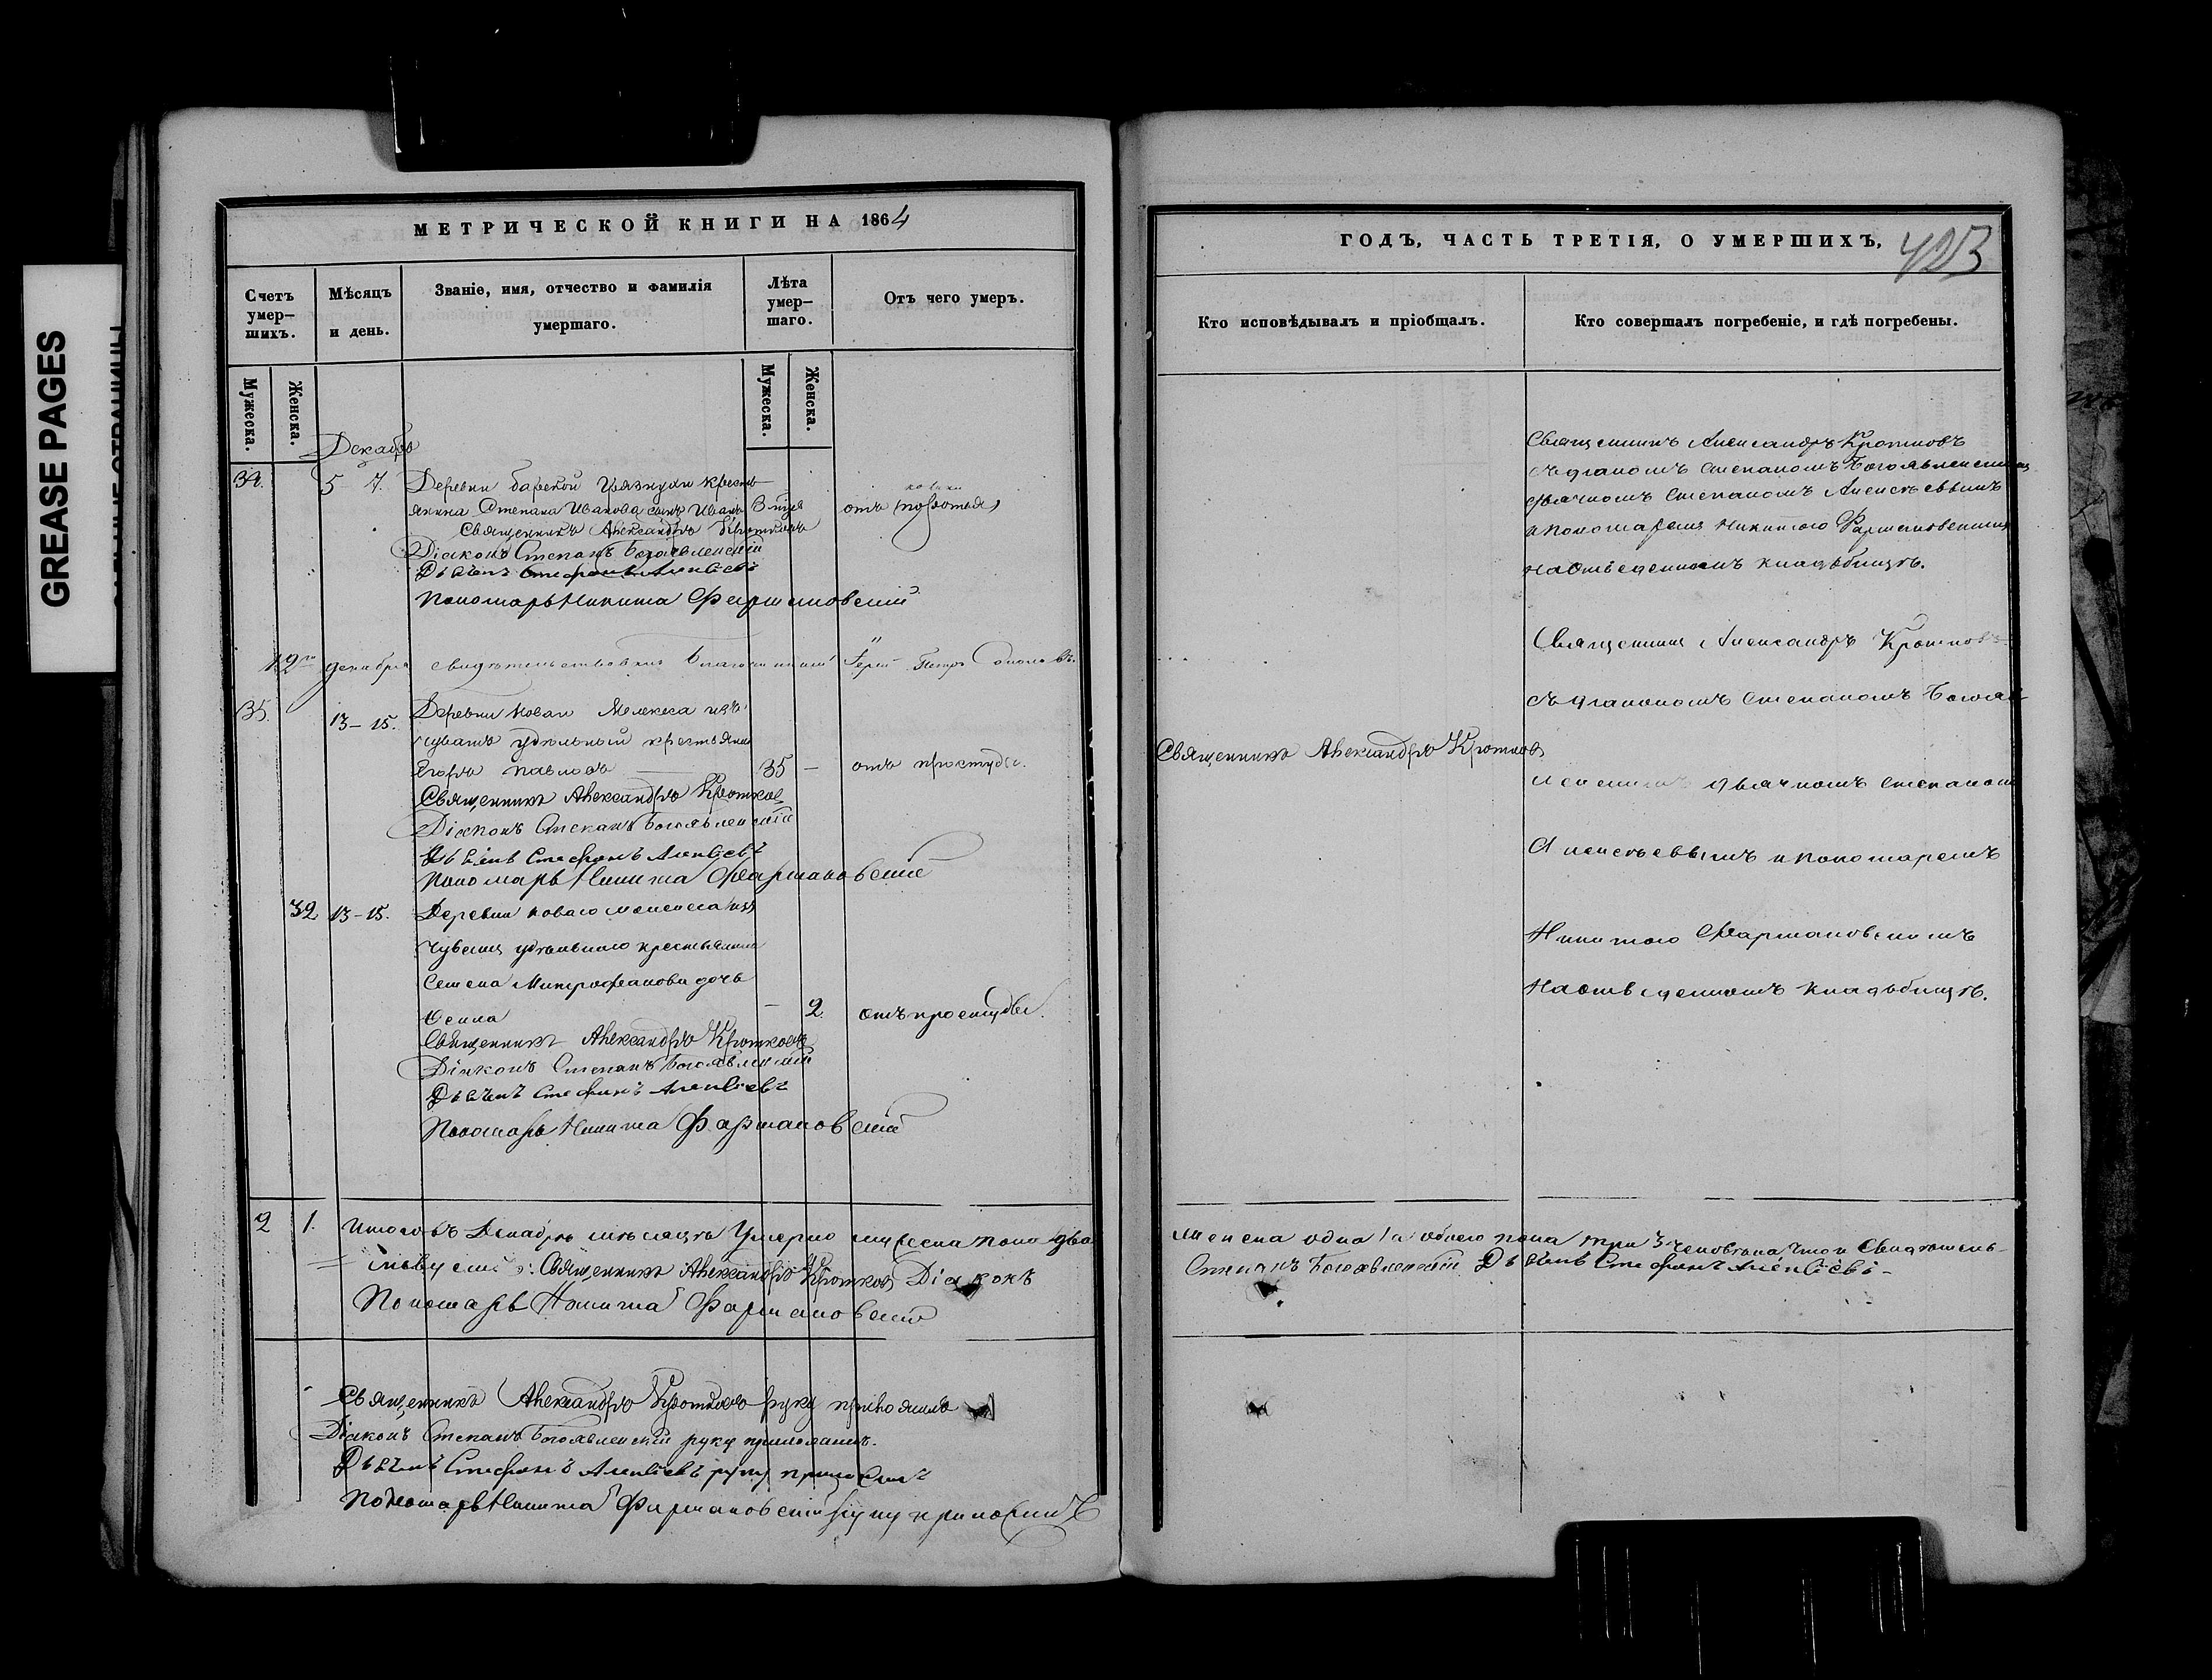 GREASE PAGES
МЕТРИЧЕСКОЙ КНИГИ НА 1864
Счетъ умер-шихъ.
Мѣсяцъ и день.
Званіе, имя, отчество и фамилія умершаго.
Лѣта умер-шаго.
Отъ чего умеръ.
Мужеска.
Женска.
Мужеска.
Женска.
Декабрь
34.
5 7.
Деревни барской Грязнухи кресть-
янина Степана Иванова сынъ Иванъ
отъ
Священникъ Александръ Кротковъ
Діаконъ Степанъ Богоявленскій
Дьячекъ Стефанъ Алексѣевъ
Пономарь Никита Фармаковскій
12го декабря свидѣтельствовалъ Благочинный Іерей Петръ
35.
13-15.
Деревни Новай Мелекеса изъ
чувашъ удѣльный крестьянинъ
Егоръ Павловъ 35 - отъ простуды.
Священникъ Александръ Кротковъ
Діаконъ Степанъ Богоявленскій
Дьячекъ Стефанъ Алексѣевъ
Пономарь Никита Фармаковскій
32 13-15.
Деревни Новаго Мелекеса изъ
удѣльнаго крестьянина
Семена Митрофанова дочь
- 2. отъ простуды.
Священникъ Александръ Кротковъ
Діаконъ Степанъ Богоявленскій
Дьячекъ Стефанъ Алексѣевъ
Пономарь Никита Фармаковскій
2 1. Итого въ Декабрѣ мѣсяцѣ Умерло мужеска пола два
Священникъ Александръ Кротковъ Діаконъ
Пономарь Никита Фармаковскій
Священникъ Александръ Кротковъ руку приложилъ
Діаконъ Степанъ Богоявленскій руку приложилъ.
Дьячекъ Стефанъ Алексѣевъ руку приложилъ
Пономарь Никита Фармаковскій руку приложилъ
ГОДЪ, ЧАСТЬ ТРЕТІЯ, О УМЕРШИХЪ,
423
Кто исповѣдывалъ и пріобщалъ.
Кто совершалъ погребеніе, и гдѣ погребены.
Священникъ Александръ Кротковъ
съ діакономъ Степаномъ Богоявленскимъ
дьячкомъ Степаномъ Алексѣевымъ
и пономаремъ Никитою Фармаковскимъ
на отведенномъ кладбищѣ.
Священникъ Александръ Кротковъ
съ діакономъ Степаномъ
Священникъ Александръ Кротковъ
дьячкомъ Степаномъ
Алексѣевымъ и пономаремъ
Никитою Фармаковскимъ
на отведенномъ кладбищѣ.
женска одна а обоего пола три человѣка
Степанъ Богоявленскій Дьячекъ Стефанъ Алексѣевъ